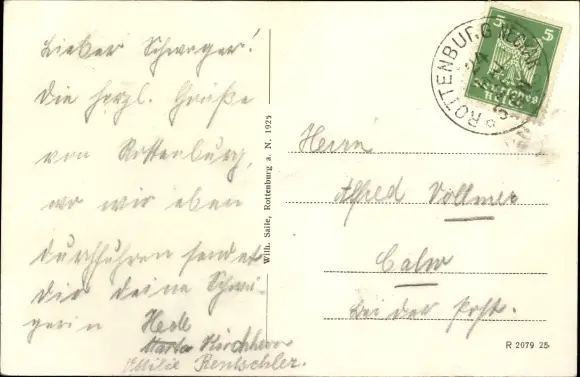 Lieber Schwager!
Die herzl. Grüße
von Rottenburg,
wo wir eben
durchfuhren sendet
Dir deine Schwä-
gerin Hede
Marta Kirchherr
Emilie Rentschler.
Wilh. Saile, Rottenburg a. N. 1925
ROTTENBURG
5 5
Deutsches
Reich
Herrn
Alfred Vollmer
Calw
bei der Post.
R 2079 25